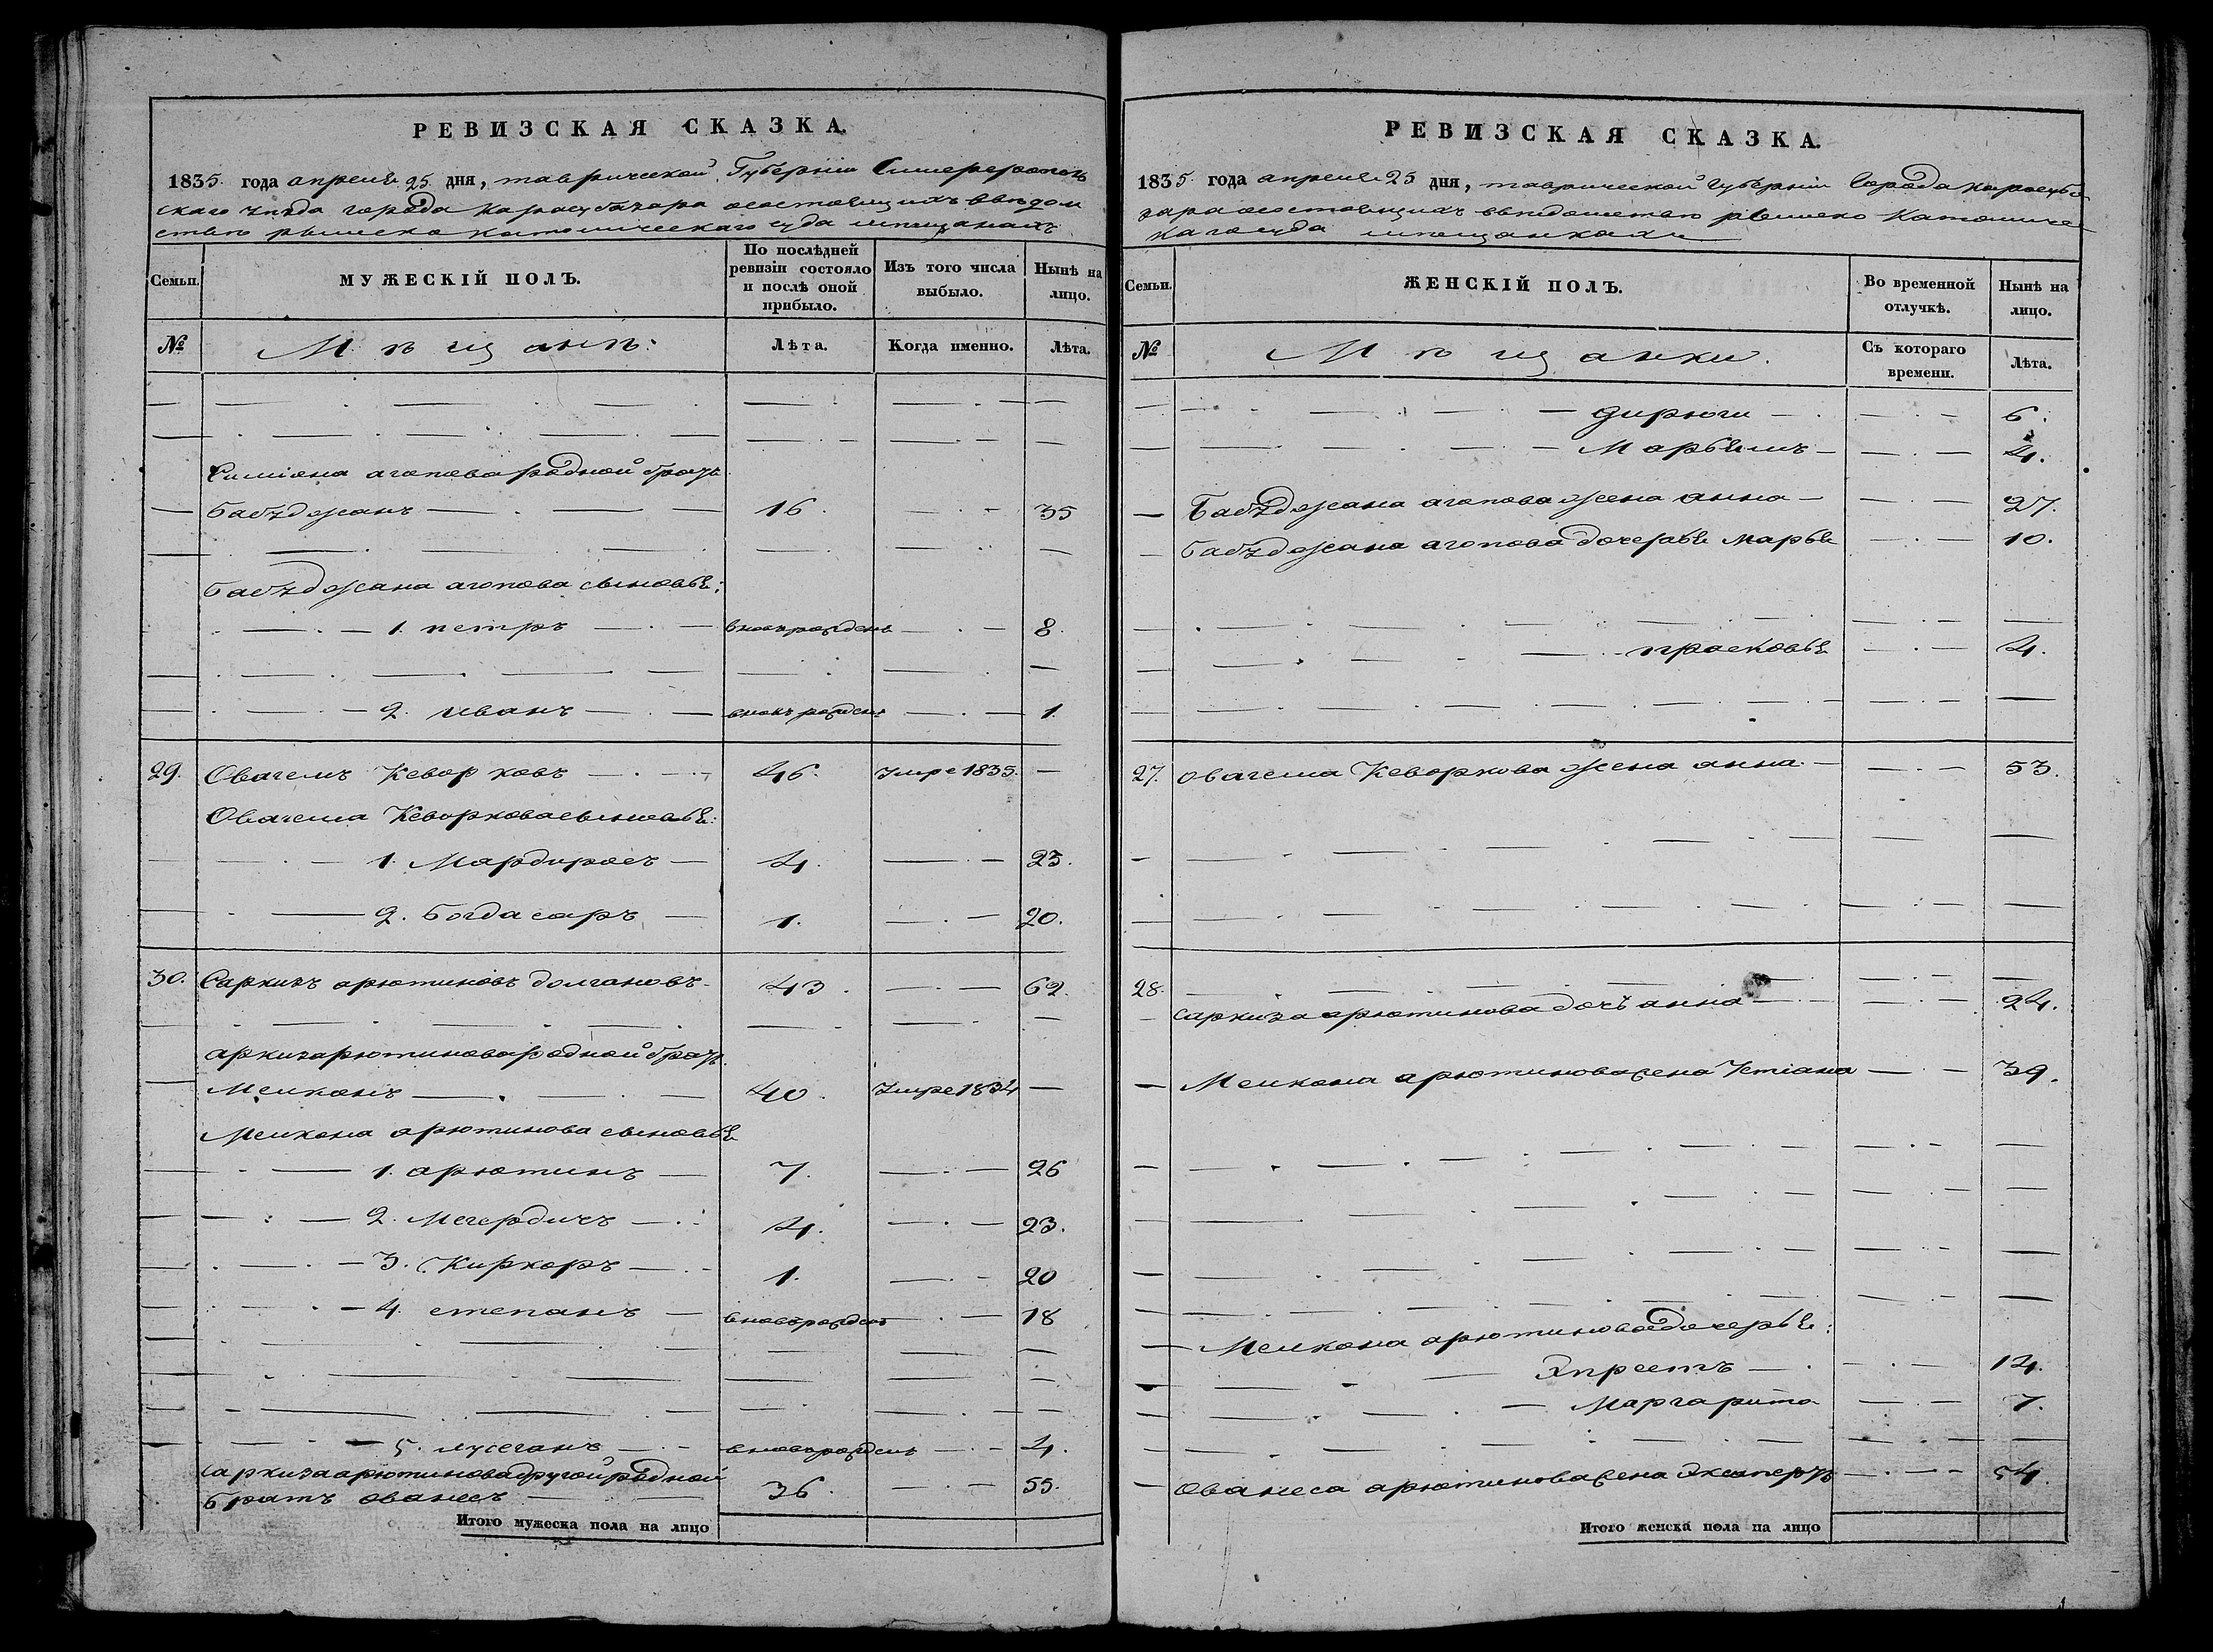 РЕВИЗСКАЯ СКАЗКА.
1835. года апреля 25 дня, таврической Губерніи Симферополь
скаго уѣзда города Карасубазара о состоящихъ ввѣдом
ствѣ римско католическаго суда мѣщанахъ
Семьи. МУЖЕСКІЙ ПОЛЪ. По послѣдней ревизіи состояло и послѣ оной прибыло. Изъ того числа выбыло. Нынѣ на лицо.
№ Мѣщанѣ: Лѣта. Когда именно. Лѣта.
Симіона агопова родной братъ
Бабъджанъ 16. 35
Бабъджана агопова сыновья:
1. петръ вновьрожденъ 8.
2. иванъ вновьрожденъ 1.
29. Овагемъ Кеворковъ 46. Умре 1835. —
Овагема Кеворкова сыновья:
1. Мардиросъ 4. 23.
2. Богдасаръ 1. 20.
30. Саркизъ арютиновъ долгановъ 43. 62.
аркизарютинова родной братъ
Мелконъ 40. Умре 1834 —
Мелкона арютинова сыновья
1. арютинъ 7. 26
2. Мегердичъ 4. 23.
3. Киркоръ 1. 20
4. степанъ вновьрожденъ 18
5. лусеганъ вновьрожденъ 4.
саркиза арютинова другой родной
братъ ованесъ 36. 55.
Итого мужеска пола на лицо
РЕВИЗСКАЯ СКАЗКА.
1835. года апреля 25 дня, таврической губерніи Города Карасуба
зара о состоящихъ ввѣдомствѣ римско Католичес
каго суда мѣщанкахъ
Семьи. ЖЕНСКІЙ ПОЛЪ. Во временной отлучкѣ. Нынѣ на лицо.
№ Мѣщанки. Съ котораго времени. Лѣта.
дирюги 6.
Марьямъ 4.
Бабъджана агопова жена анна 27.
бабъджана агопова дочерья марья 10.
прасковья 4.
27. овагема Кеворкова жена анна 53.
28.
саркиза арютинова дочъ анна 24.
Мелкона арютинова жена 39.
Мелкона арютинова дочерья:
Эпреетъ 14.
Маргарита 7.
Ованеса арютинова жена 54.
Итого женска пола на лицо